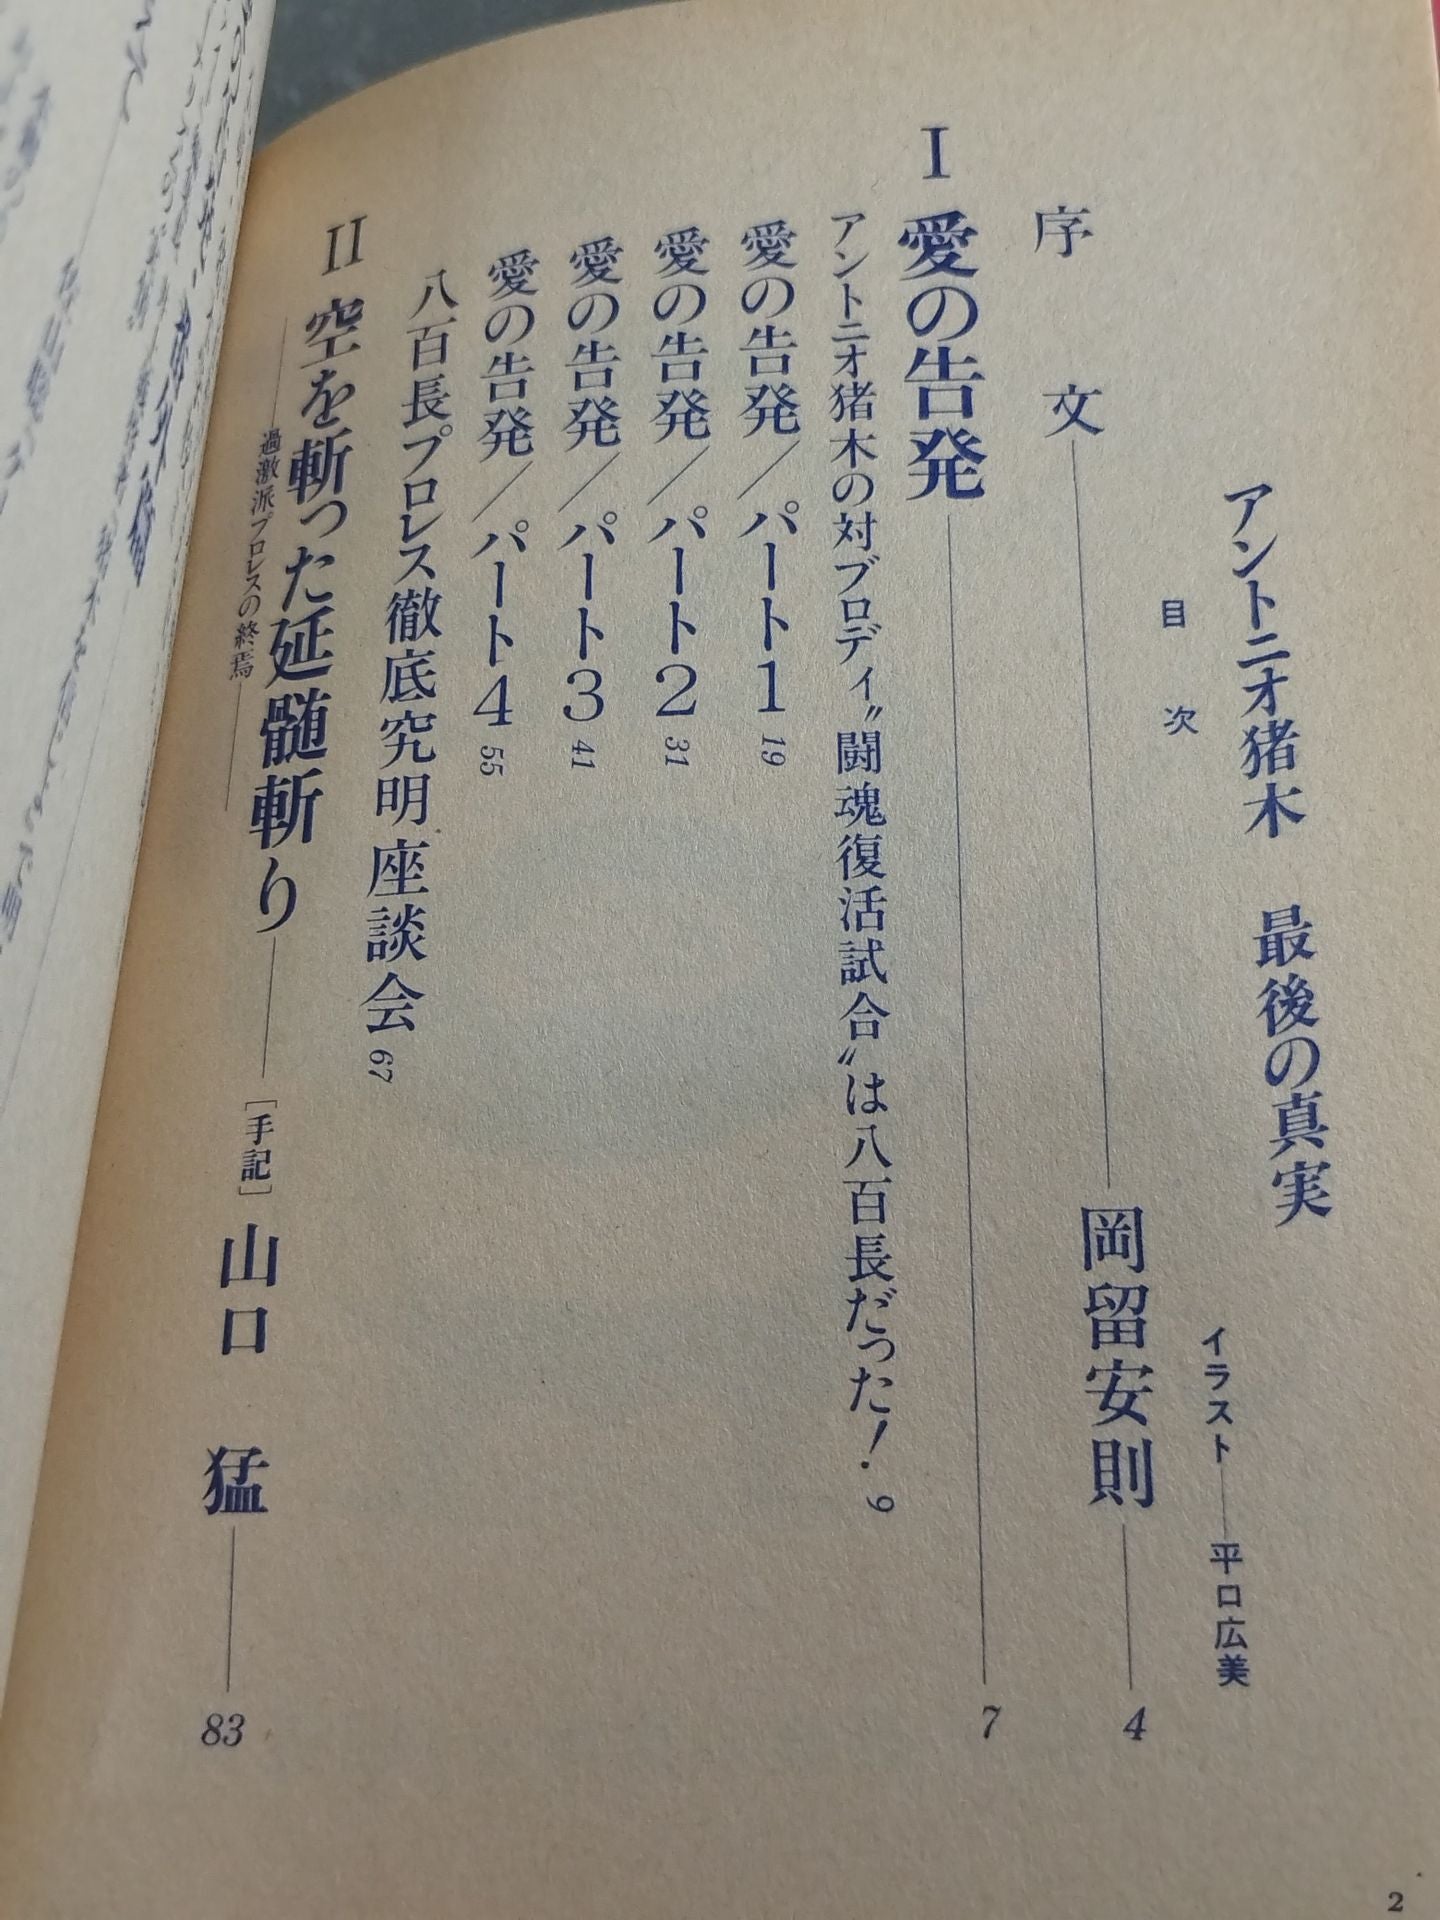 アントニオ猪木 最後の真実
目次
イラスト――平口広美
序文――岡留安則――4
I 愛の告発――7
アントニオ猪木の対ブロディ〝闘魂復活試合〟は八百長だった! 9
愛の告発/パート1 19
愛の告発/パート2 31
愛の告発/パート3 41
愛の告発/パート4 55
八百長プロレス徹底究明座談会 67
II 空を斬った延髄斬り――[手記]山口 猛――83
――過激派プロレスの終焉――
2